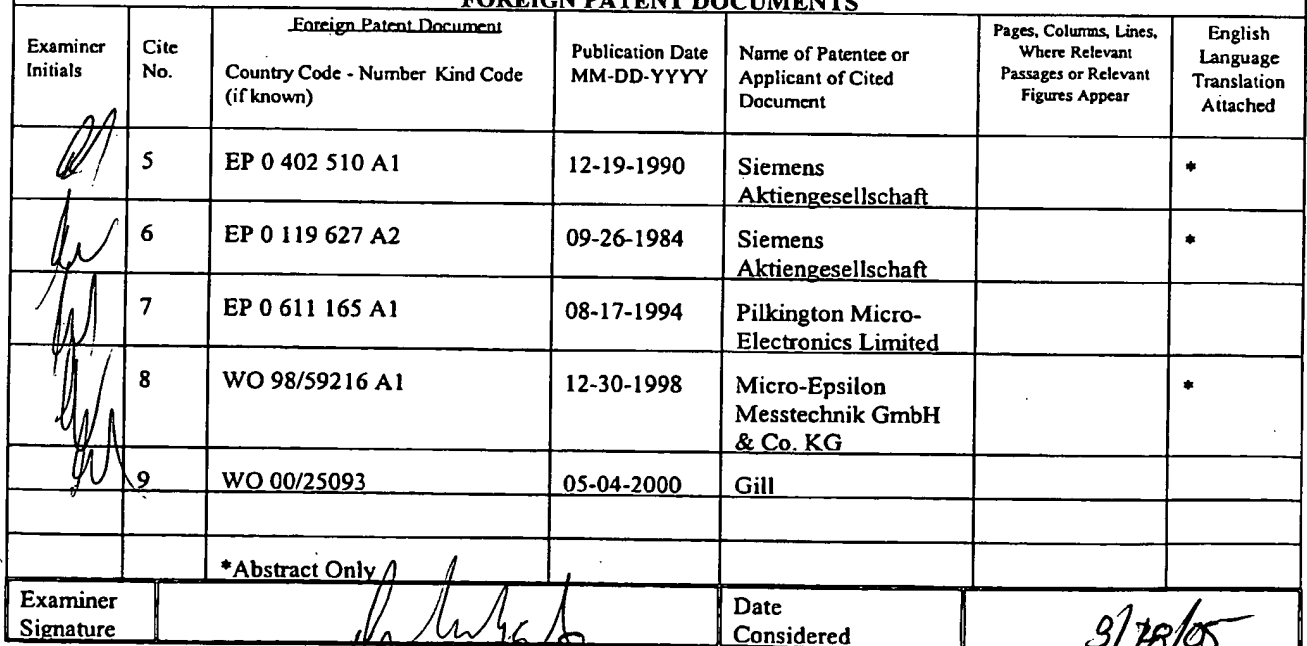 FOREIGN PATENT DOCUMENTS
Examiner Initials
Cite No.
Foreign Patent Document
Country Code - Number Kind Code (if known)
Publication Date MM-DD-YYYY
Name of Patentee or Applicant of Cited Document
Pages, Columns, Lines, Where Relevant Passages or Relevant Figures Appear
English Language Translation Attached
5 EP 0 402 510 A1 12-19-1990 Siemens Aktiengesellschaft *
6 EP 0 119 627 A2 09-26-1984 Siemens Aktiengesellschaft *
7 EP 0 611 165 A1 08-17-1994 Pilkington Micro-Electronics Limited
8 WO 98/59216 A1 12-30-1998 Micro-Epsilon Messtechnik GmbH & Co. KG *
9 WO 00/25093 05-04-2000 Gill
*Abstract Only
Examiner Signature
Date Considered